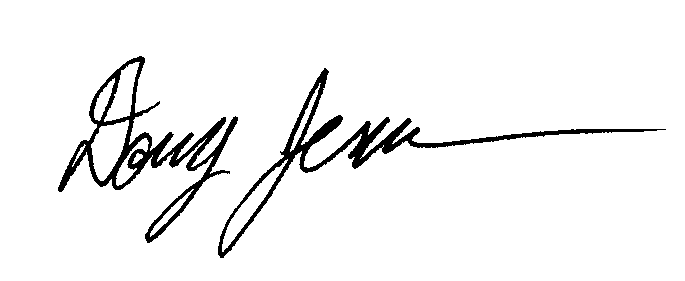 Doug Jenn